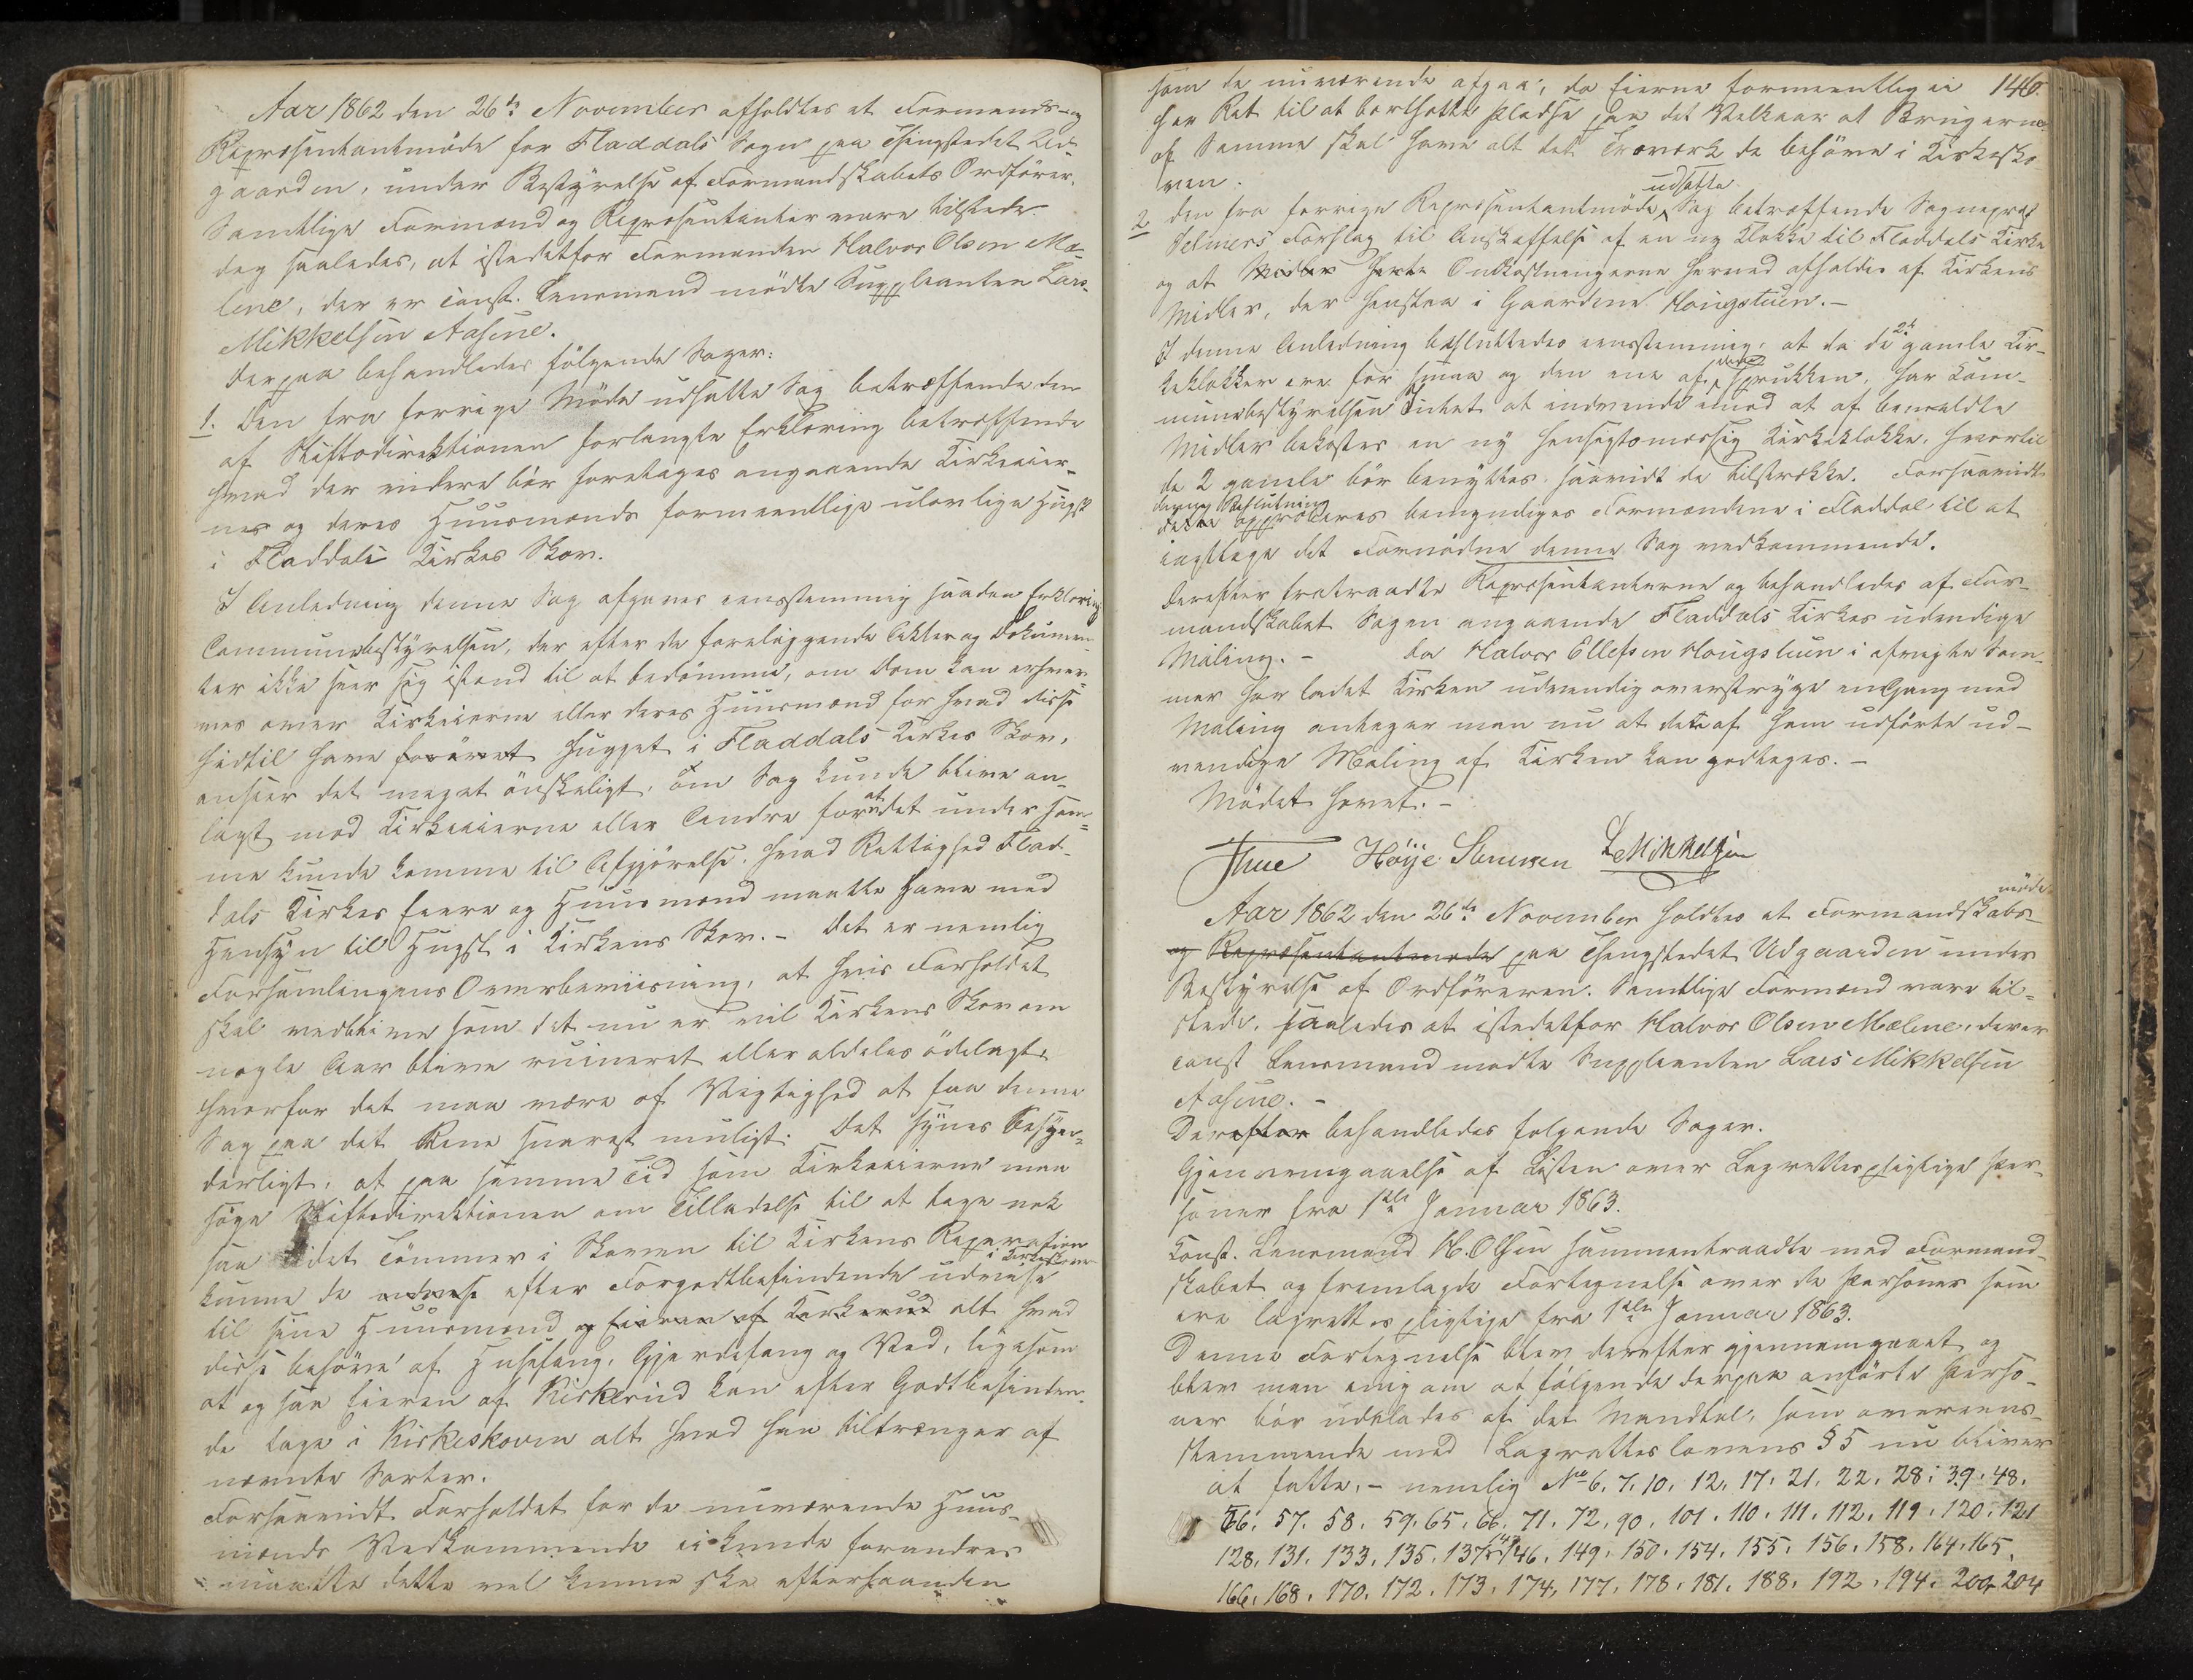 Aar 1862 den 26de November afholdtes et Formands- og
Repræsentantmöde for Fladdals Sogn paa Thingstedet Ud-
gaarden, under Bestyrelse af Formandskabets Ordförer.
Samtlige Formænd og Repræsentanter vare tilstede
dog saaledes, at istedetfor Formanden Halvor Olsen Mæ-
lene, der er const. Lensmand mödte Suppleanten Lars
Mikkelsen Aasene.
Derpaa behandledes fölgende Sager:
1. Den fra forrige Möde udsatte Sag betræffende den
af Stiftsdirektionen forlangte Erklæring betræffende
hvad der videre bör foretages angaaende Kirkeeier-
nes og deres Huusmænds formeentlige ulovlige Hugst
i Fladdals Kirkes Skov.
I Anledning denne Sag afgaves eensstemmig saadan Erklæring
Communebestyrelsen, der efter de foreliggende Akter og Dokumen-
ter ikke seer sig istand til at bedömme, om Dom kan erhver-
ves over Kirkeeierne eller deres Huusmænd for hvad disse
hidtil have forövet hugget i Fladdals Kirkes Skov,
anseer det meget önskeligt, om Sag kunde blive an-
lagt mod Kirkeeierne eller Andre for at det under sam-
me kunde komme til Afgjörelse, hvad Rettighed Flad-
dals Kirkes Eiere og Huusmænd maatte have med
Hensyn til Hugst i Kirkens Skov. - Det er nemlig
Forsamlingens Overbeviisning, at hvis Forholdet
skal vedblive som det nu er, vil Kirkens Skov om
nogle Aar blive ruineret eller aldeles ödelagt,
hvorfor det maa være af Vigtighed at faa denne
Sag paa det Rene snarest muligt. Det synes besyn-
derligt, at paa samme Tid som Kirkeeierne maa
söge Stiftsdirektionen om Tilladelse til at tage nok
saa lidet Tömmer i Skoven til Kirkens Reparation
kunne de udvise efter Forgodtbefindende udvise i Kirkeskoven
til sine Huusmænd og Eieren af Kirkerud alt hvad
disse behöve af Husefang, Gjerdefang og Ved, ligesom
at og saa Eieren af Kirkerud kan efter Godtbefinden-
de tage i Kirkeskoven alt hvad han tiltrænger af
nævnte Sorter.
Forsaavidt Forholdet for de nuværende Huus-
mænds Vedkommende ei kunde forandres
maatte dette vel kunne ske efterhaanden
146.
som de nuværende afgaa, da Eierne formeentlig ei
har Ret til at bortsætte Pladse paa det Velkaar at Brugerne
af Samme skal have alt det Træværk de behöve i Kirkesko-
ven.
2. Den fra forrige Repræsentantmöde udsatte Sag betræffende Sognepræst
Selmers Forslag til Anskaffelse af en ny Klokke til Fladdals Kirke
og at Midler herte Omkostningerne herved afholdes af Kirkens
Midler, der henstaa i Gaardene Hougstuen. -
I denne Anledning besluttedes eensstemmig, at da de 2de gamle Kir-
keklokker ere for smaa og den ene af disse sprukken, har Com-
munebestyrelsen Intet at indvende imod at af bemeldte
Midler bekostes en ny hensigtsmæssig Kirkeklokke, hvortil
de 2 gamle bör benyttes saavidt de tilstrække. Forsaavidt
denne Beslutning
dette approberes bemyndiges Formændene i Fladdal til at
iagttage det Fornödne denne Sag vedkommende.
Derefter fratraadte Repræsentanterne og behandledes af For-
mandskabet Sagen angaaende Fladdals Kirkes udvendige
Maling. - Da Halvor Ellefsen Hougstuen i afvigte Som-
mer har ladet Kirken udvendig overstryge en Gang med
Maling antager man nu at det af ham udförte ud-
vendige Maling af Kirken kan godtages. -
Mödet hævet. -
Thue Höÿe Stenersen L Mikkelsen
Aar 1862 den 26de November holdtes et Formandskabs- möde
og Repræsentantmöde paa Thingstedet Udgaarden under
Bestyrelse af Ordföreren. Samtlige Formænd vare til-
stede, saaledes at istedetfor Halvor Olsen Mælene, der er
const Lensmand mödte Suppleanten Lars Mikkelsen
Aasene. -
Derefter behandledes fölgende Sager.
Gjennemgaaelse af Listen over Lagrettespligtige Per-
soner fra 1ste Januar 1863.
Const. Lensmand H. Olsen sammentraadte med Formand-
skabet og fremlagde Fortegnelse over de Personer som
ere lagrettespligtige fra 1ste Januar 1863.
Denne Fortegnelse blev derefter gjennemgaaet og
blev man enig om at fölgende derpaa anförte Perso-
ner bör udelades af det Mandtal, som overeens-
stemmende med Lagretteslovens § 5 nu bliver
at fatte, - nemlig No 6. 7. 10. 12. 17. 21. 22. 28. 39. 48.
56. 57. 58. 59. 65. 66. 71. 72. 90. 101. 110. 111. 112. 119. 120. 121
128. 131. 133. 135. 137. 146. 149. 150. 154. 155. 156. 158. 164. 165.
166. 168. 170. 172. 173. 174. 177. 178. 181. 188. 192. 194. 200. 204